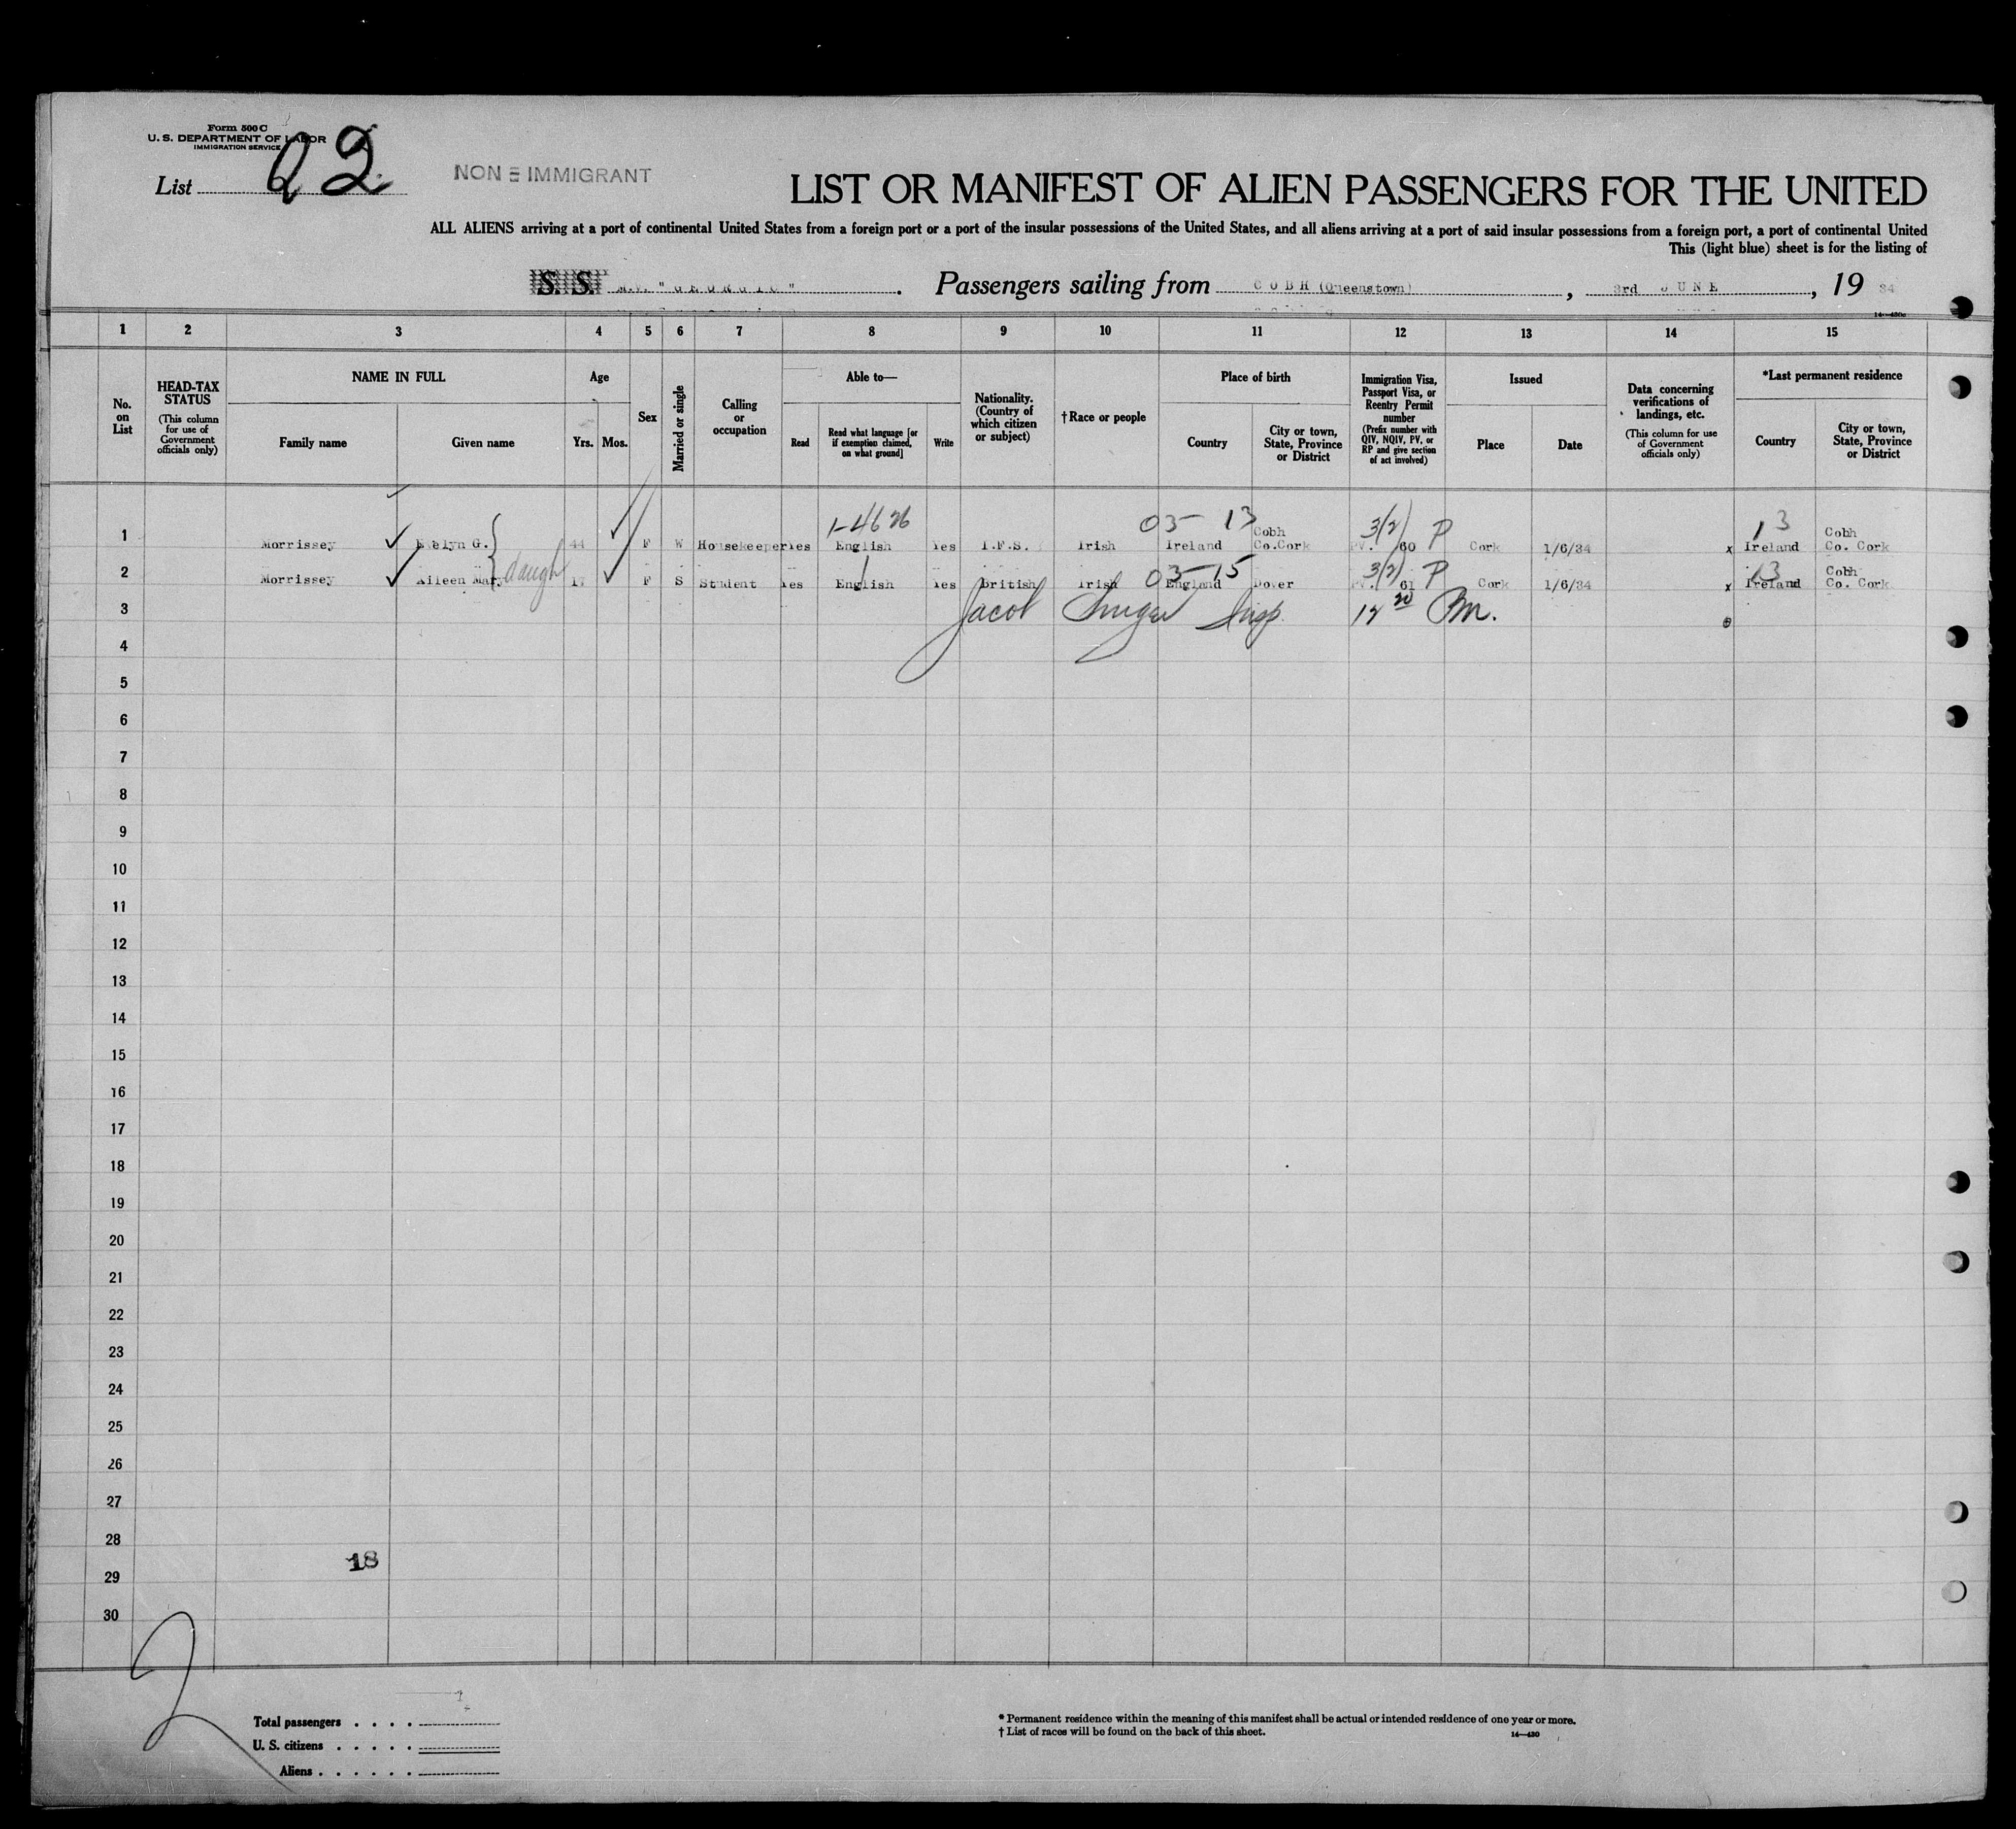 Form 500 C
U. S. DEPARTMENT OF LABOR
IMMIGRATION SERVICE
List 22
NON = IMMIGRANT
LIST OR MANIFEST OF ALIEN PASSENGERS FOR THE UNITED
ALL ALIENS arriving at a port of continental United States from a foreign port or a port of the insular possessions of the United States, and all aliens arriving at a port of said insular possessions from a foreign port, a port of continental United
This (light blue) sheet is for the listing of
S. S. M.V. "GEORGIC". Passengers sailing from COBH (Queenstown), 3rd JUNE, 19 34
1 2 3 4 5 6 7 8 9 10 11 12 13 14 15
No. on List
HEAD-TAX STATUS
(This column for use of Government officials only)
NAME IN FULL
Family name
Given name
Age
Yrs.
Mos.
Sex
Married or single
Calling or occupation
Able to—
Read
Read what language [or if exemption claimed, on what ground]
Write
Nationality. (Country of which citizen or subject)
†Race or people
Place of birth
Country
City or town, State, Province or District
Immigration Visa, Passport Visa, or Reentry Permit number
(Prefix number with QIV, NQIV, PV, or RP and give section of act involved)
Issued
Place
Date
Data concerning verifications of landings, etc.
(This column for use of Government officials only)
*Last permanent residence
Country
City or town, State, Province or District
1-4626 03-13 3(2) P 13
1 Morrissey Evelyn G. 44 F W Housekeeper Yes English Yes I.F.S. Irish Ireland Cobh Co.Cork PV. 60 Cork 1/6/34 x Ireland Cobh Co. Cork
daugh 03-15 3(2) P 13
2 Morrissey Aileen Mary 17 F S Student Yes English Yes British Irish England Dover PV. 61 Cork 1/6/34 x Ireland Cobh Co. Cork
3 Jacob Insp. 12 20 Pm.
4
5
6
7
8
9
10
11
12
13
14
15
16
17
18
19
20
21
22
23
24
25
26
27
28
18
29
30
2
Total passengers . . . .
U. S. citizens . . . . .
Aliens . . . . . .
* Permanent residence within the meaning of this manifest shall be actual or intended residence of one year or more.
† List of races will be found on the back of this sheet.
14—430